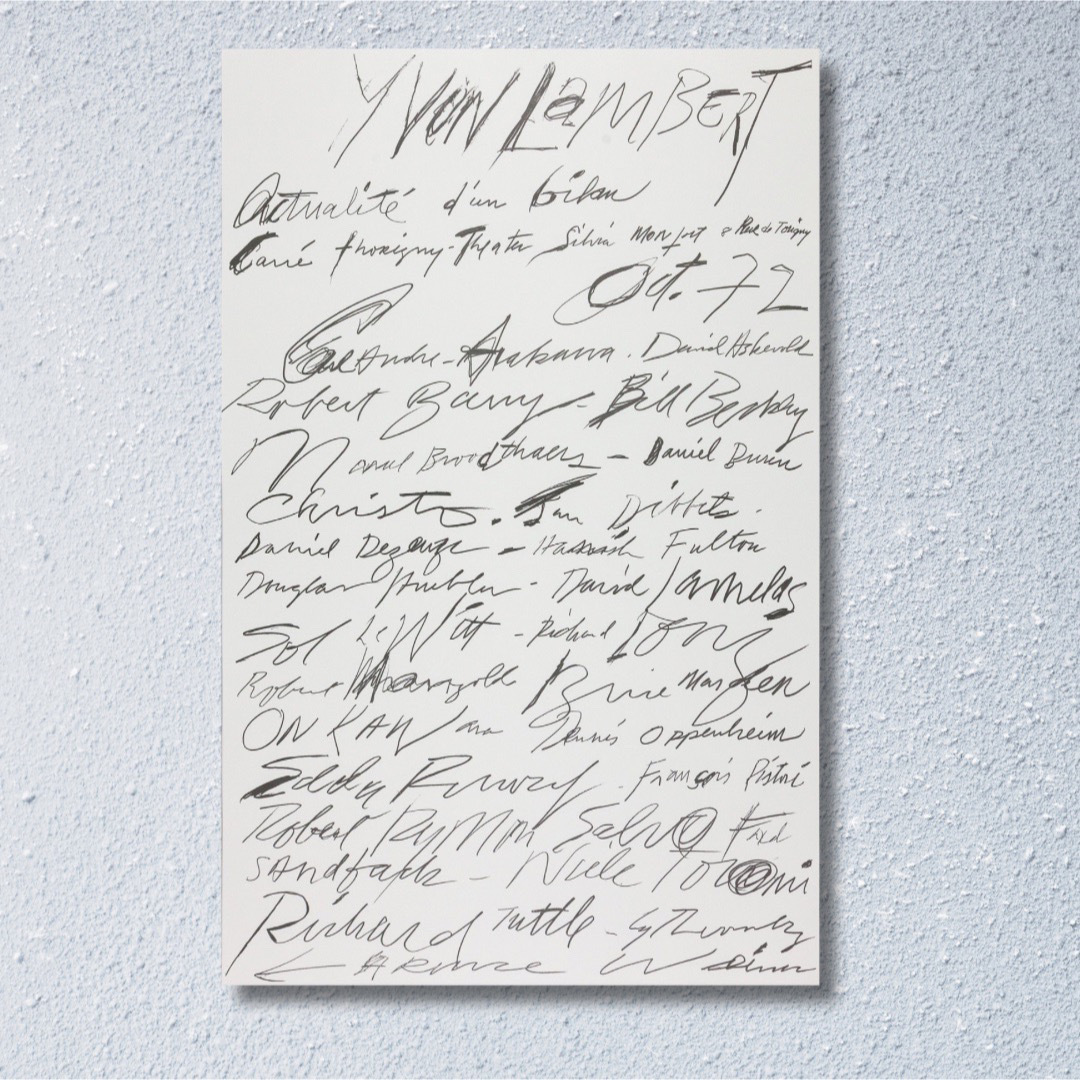 YVON LAMBERT
Actualité d'un bilan
Carré Thorigny - Theater Silvia Monfort 8 Rue de Torigny
Oct. 72
Carl Andre - Arakawa . David Askevold
Robert Barry - Bill Beckley
Marcel Broodthaers - Daniel Buren
Christo . Jan Dibbets .
Daniel Dezeuze - Hamish Fulton
Douglas Huebler - David Lamelas
Sol LeWitt - Richard Long
Robert Mangold Brice Marden
ON KAWara Dennis Oppenheim
Edda Renouf . François Ristori
Robert Ryman Salvo Fred
Sandback - Niele Toroni
Richard Tuttle - Cy Twombly
Lawrence Weiner